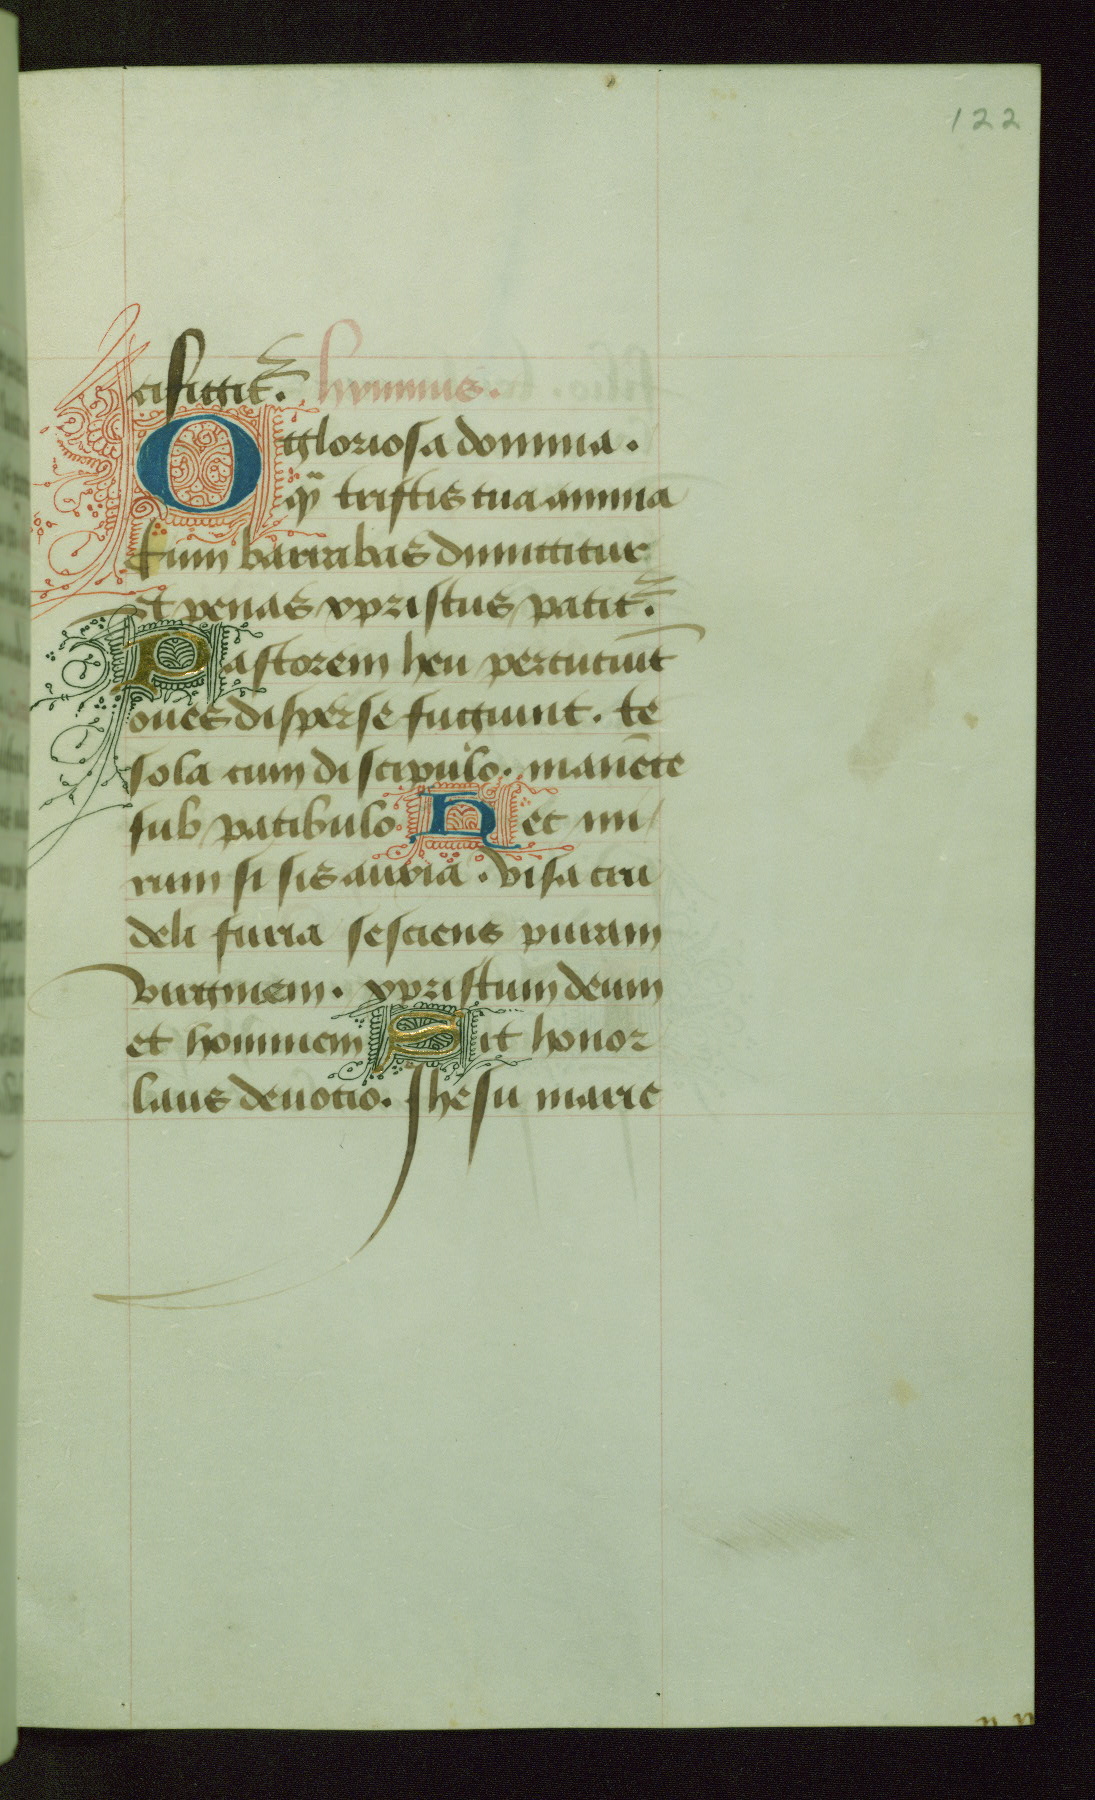 122
cifigit̾. hymnus.
O gloriosa domina.
qȝ tristis tua anima
Cum barrabas dimittitur
Et penas xpristus patit̾.
Pastorem heu percuciūt
oues disperse fugiunt. te
sola cum discipulo. manēte
sub patibulo. Nec mi
rum si sis anxia. visa cru
deli furia sesciens puram
virginem. xpristum deum
et hominem Sit honor
laus deuotio. Ihesu marie